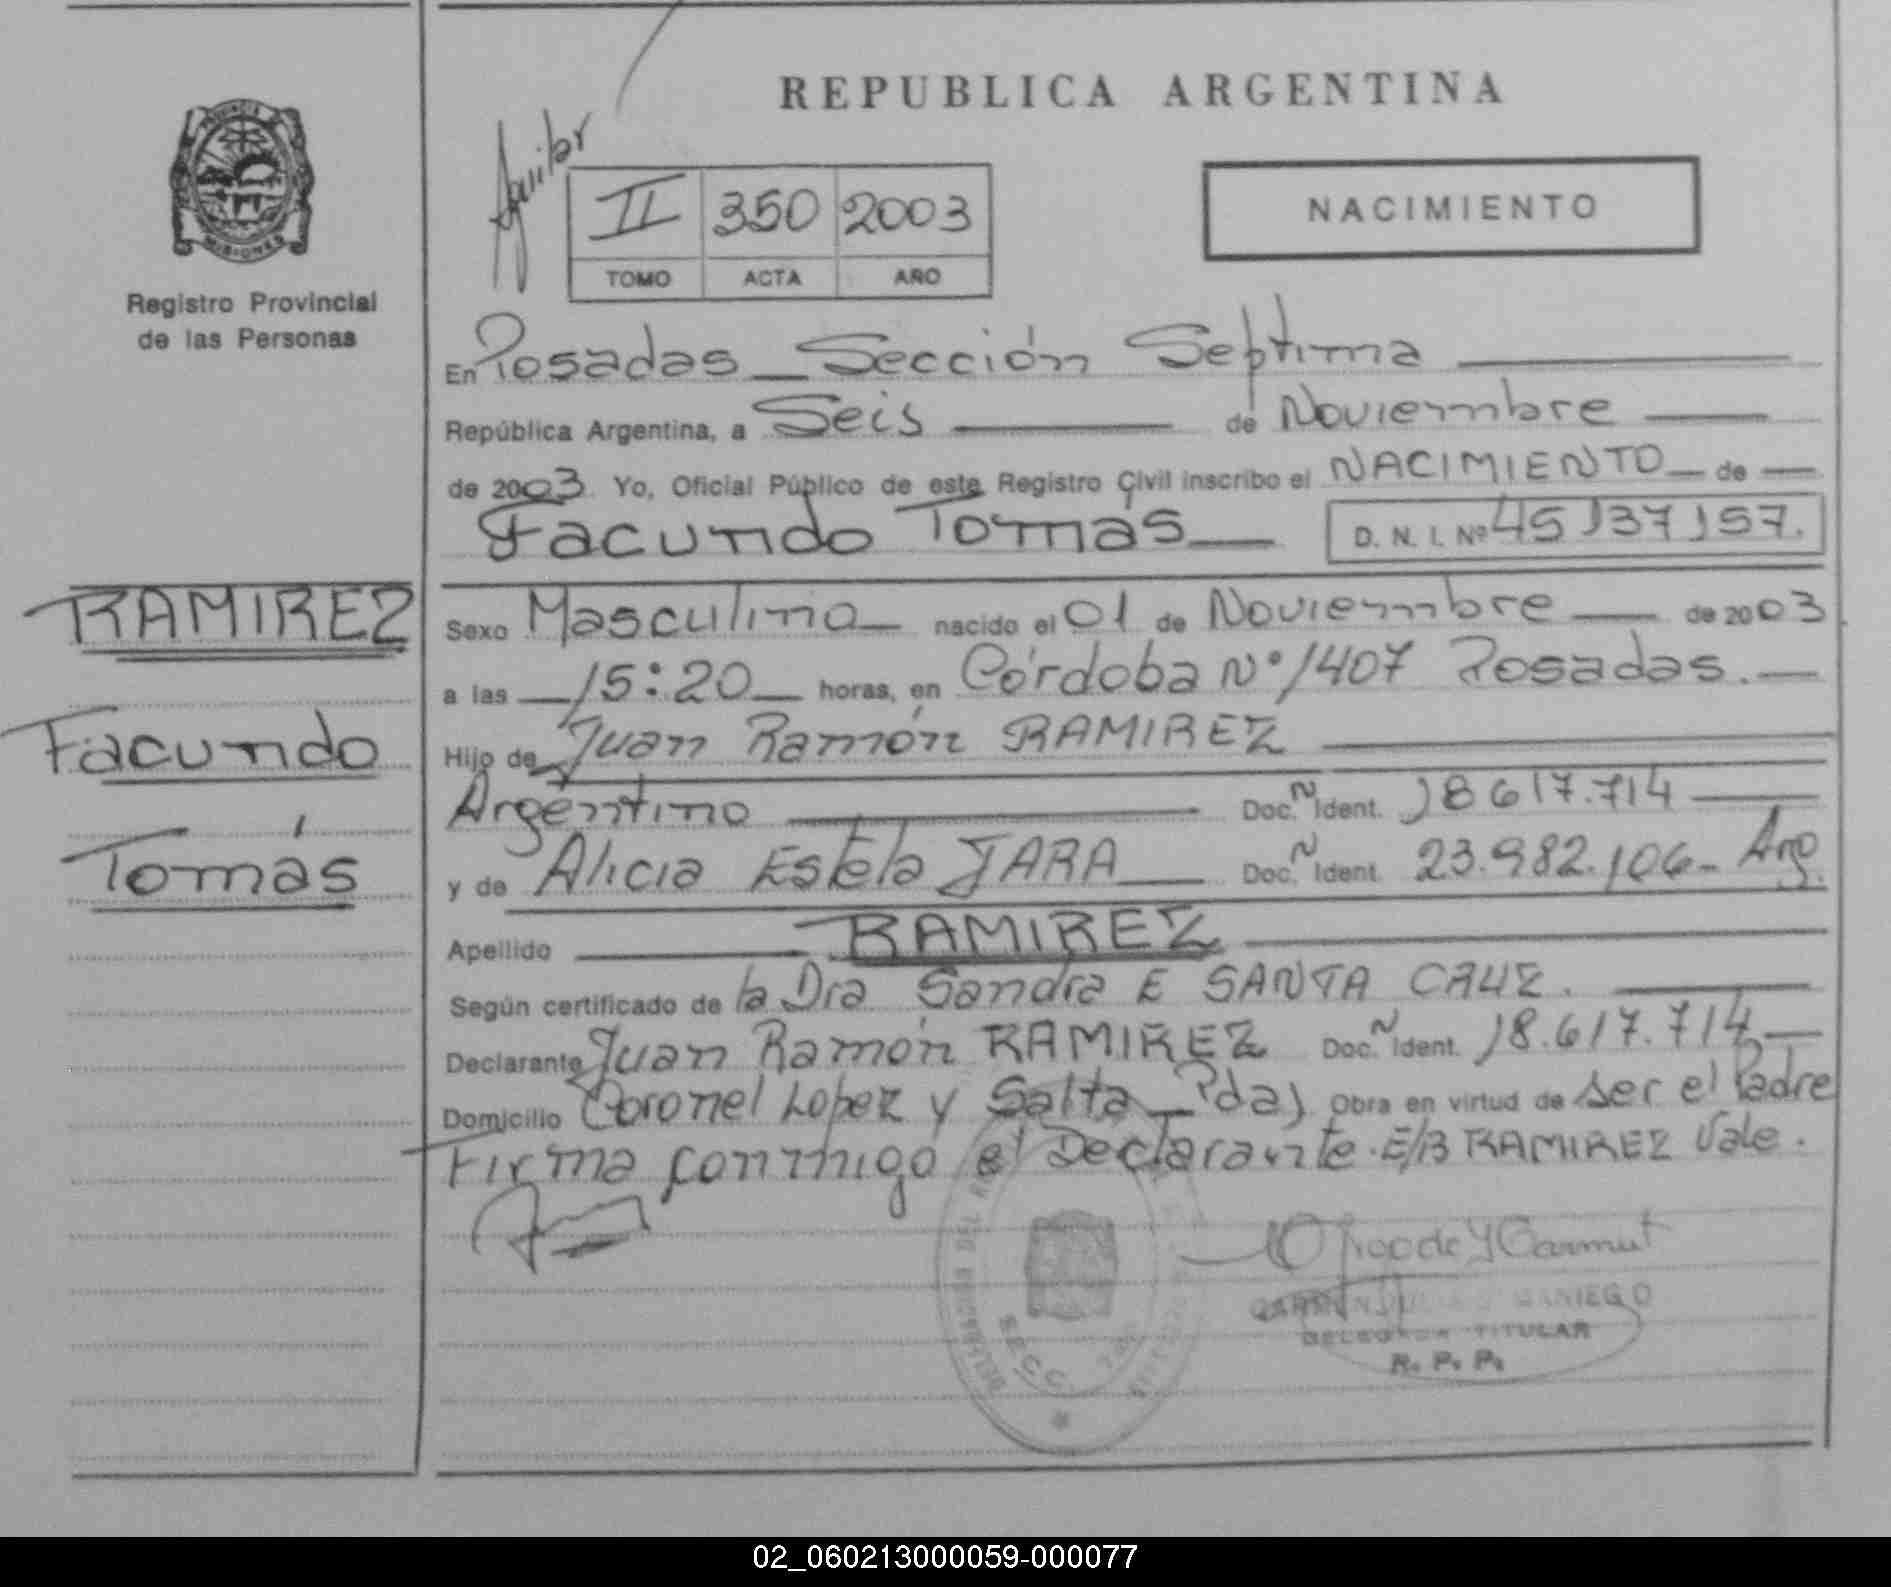 REPUBLICA ARGENTINA
Aguilar
II 350 2003
TOMO ACTA AÑO
NACIMIENTO
PROVINCIA
MISIONES
Registro Provincial
de las Personas
En Posadas _ Sección Septima
República Argentina, a Seis de Noviembre
de 2003. Yo, Oficial Público de este Registro Civil inscribo el NACIMIENTO de
Facundo Tomás D. N. I. Nº 45137157.
RAMIREZ
Facundo
Tomás
Sexo Masculino nacido el 01 de Noviembre de 2003
a las 15:20 horas, en Córdoba Nº 1407 Posadas.
Hijo de Juan Ramón RAMIREZ
Argentino Doc. N Ident. 18617.714
y de Alicia Estela JARA Doc. N Ident. 23.982.106 - Arg.
Apellido RAMIREZ
Según certificado de la Dra Sandra E SANTA CRUZ.
Declarante Juan Ramón RAMIREZ Doc. N Ident. 18.617.714
Domicilio Coronel Lopez y Salta _ Pdas Obra en virtud de ser el Padre
Firma conmigo el Declarante. E/B RAMIREZ Vale.
DEL
SECC.
CARMEN MANIEGO
DELEGADA TITULAR
R. P. P.
02_060213000059-000077